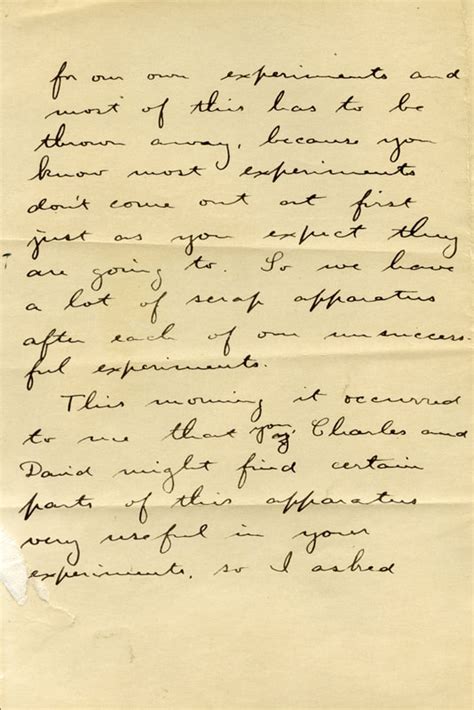 for our own experiments and
most of this has to be
thrown away, because you
know most experiments
don't come out at first
just as you expect they
are going to. So we have
a lot of scrap apparatus
after each of our unsuccess-
ful experiments.
This morning it occurred
to me that you, Charles and
David might find certain
parts of this apparatus
very useful in your
experiments, so I asked